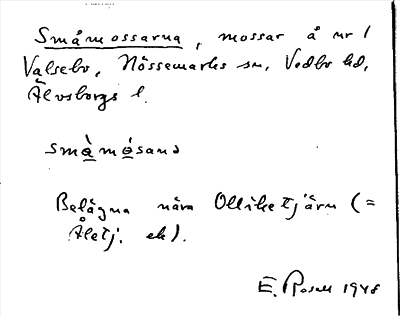 Småmossarna, mossar å nr 1
Valsebo, Nössemarks sn, Vedbo hd,
Älvsborgs l.
smȧ̀mósana
Belägna nära Olliketjärn (=
Åletj. ek).
E. Rosell 1948